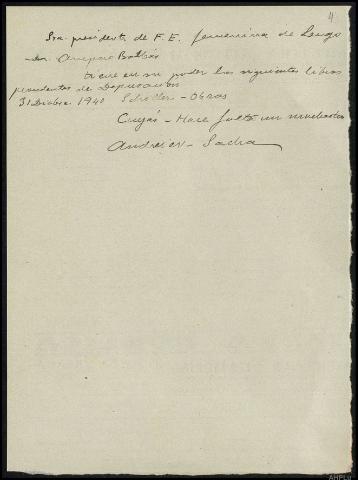 4
Sra. presidenta de F.E. femenina de Lugo
Amparo Balbás
tiene en su poder los siguientes libros
pendientes de
31 Dicbre. 1940 Schiller - Obras
Cuyás - Hace falta un muchacho
Andreiev - Sacha
AHPLu